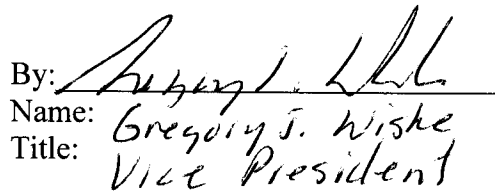 By:
Name: Gregory J. Wiske
Title: Vice President